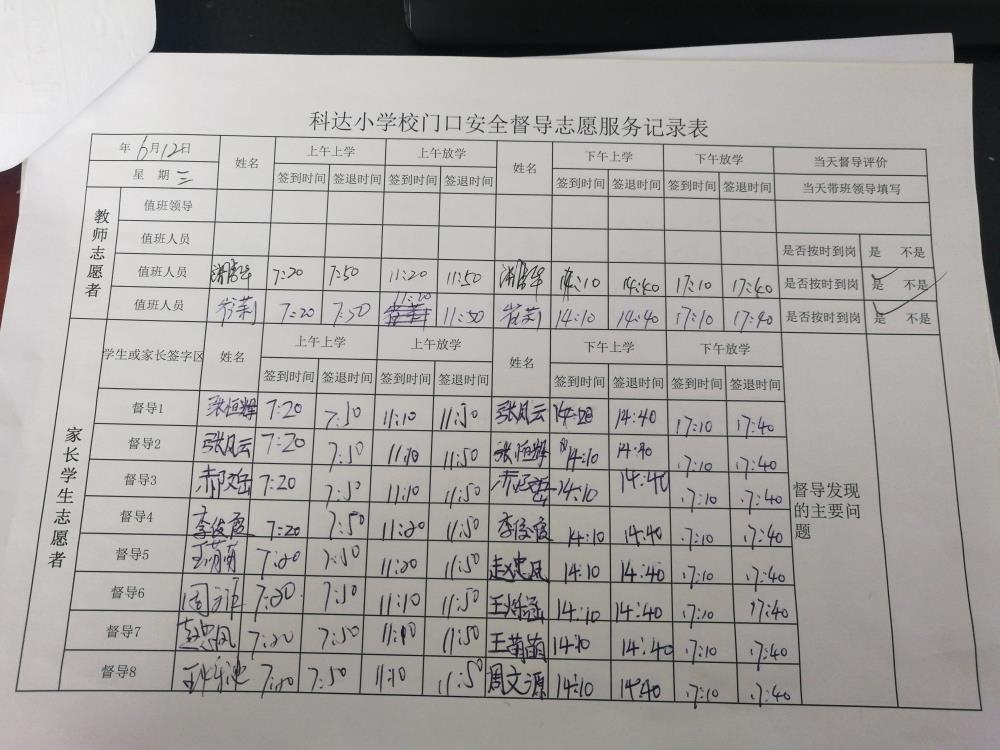 科达小学校门口安全督导志愿服务记录表
年 6月12日 姓名 上午上学 上午放学 姓名 下午上学 下午放学 当天督导评价
星 期 三 签到时间 签退时间 签到时间 签退时间 签到时间 签退时间 签到时间 签退时间 当天带班领导填写
教师志愿者
值班领导
值班人员 是否按时到岗 是 不是
值班人员 7:20 7:50 11:20 11:50 14:10 14:40 17:10 17:40 是否按时到岗 是 ✓ 不是
值班人员 7:20 7:50 11:20 11:50 14:10 14:40 17:10 17:40 是否按时到岗 是 ✓ 不是
家长学生志愿者
学生或家长签字区 姓名 上午上学 上午放学 姓名 下午上学 下午放学 督导发现的主要问题
签到时间 签退时间 签到时间 签退时间 签到时间 签退时间 签到时间 签退时间
督导1 张恒辉 7:20 7:50 11:10 11:50 张凤云 14:40 17:10 17:40
督导2 张凤云 7:20 7:50 11:10 11:50 张恒辉 14:10 14:40 17:10 17:40
督导3 郝文岳 7:20 7:50 11:10 11:50 14:10 14:40 17:10 17:40
督导4 李俊霞 7:20 7:50 11:20 11:50 李俊霞 14:10 14:40 17:10 17:40
督导5 王萌萌 7:20 7:50 11:20 11:50 赵忠凤 14:10 14:40 17:10 17:40
督导6 7:20 7:50 11:10 11:50 14:10 14:40 17:10 17:40
督导7 赵忠凤 7:20 7:50 11:10 11:50 王萌萌 14:10 14:40 17:10 17:40
督导8 7:20 7:50 11:10 11:50 周文源 14:10 14:40 17:10 17:40